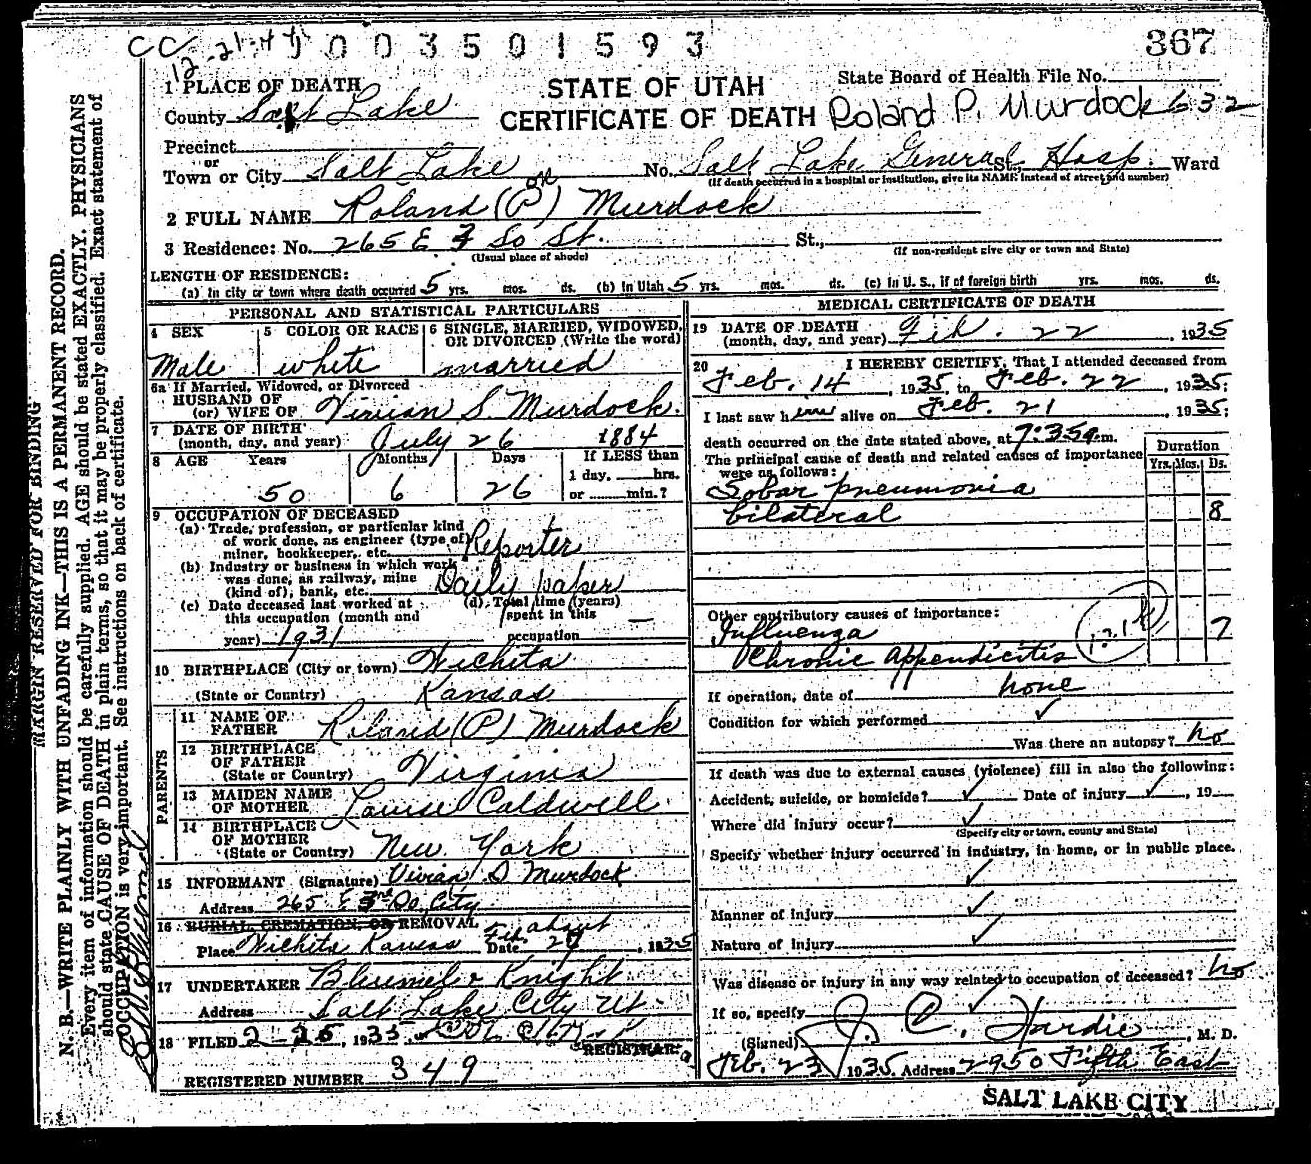 CC 1003501593 367
12-21-44
1 PLACE OF DEATH STATE OF UTAH State Board of Health File No.
County Salt Lake CERTIFICATE OF DEATH Roland P. Murdock 632
Precinct
or
Town or City Salt Lake No. Salt Lake General St., Hosp. Ward
(If death occurred in a hospital or institution, give its NAME instead of street and number)
2 FULL NAME Roland (P) Murdock
3 Residence: No. 265 E 3 So St. St.,
(Usual place of abode) (If non-resident give city or town and State)
LENGTH OF RESIDENCE:
(a) In city or town where death occurred 5 yrs. mos. ds. (b) In Utah 5 yrs. mos. ds. (c) In U. S., if of foreign birth yrs. mos. ds.
PERSONAL AND STATISTICAL PARTICULARS
4 SEX 5 COLOR OR RACE 6 SINGLE, MARRIED, WIDOWED, OR DIVORCED (Write the word)
Male white married
6a If Married, Widowed, or Divorced
HUSBAND OF
(or) WIFE OF Vivian S. Murdock.
7 DATE OF BIRTH
(month, day, and year) July 26 1884
8 AGE Years Months Days If LESS than
1 day, hrs.
50 6 26 or min.?
9 OCCUPATION OF DECEASED
(a) Trade, profession, or particular kind
of work done, as engineer (type of)
miner, bookkeeper, etc. Reporter
(b) Industry or business in which work
was done, as railway, mine
(kind of), bank, etc. Daily paper
(c) Date deceased last worked at
this occupation (month and
year) 1931
(d) Total time (years)
spent in this
occupation —
10 BIRTHPLACE (City or town) Wichita
(State or Country) Kansas
PARENTS
11 NAME OF
FATHER Roland (P) Murdock
12 BIRTHPLACE
OF FATHER
(State or Country) Virginia
13 MAIDEN NAME
OF MOTHER Louise Caldwell
14 BIRTHPLACE
OF MOTHER
(State or Country) New York
15 INFORMANT (Signature) Vivian S Murdock
Address 265 E 3rd So, City
16 BURIAL, CREMATION, OR REMOVAL about
Place Wichita Kansas Date Feb 1935
17 UNDERTAKER Knight
Address Salt Lake City Ut.
18 FILED 2-25, 1935
REGISTRAR
REGISTERED NUMBER 349
MEDICAL CERTIFICATE OF DEATH
19 DATE OF DEATH
(month, day, and year) Feb. 22 1935
20 I HEREBY CERTIFY, That I attended deceased from
Feb. 14, 1935, to Feb. 22, 1935;
I last saw him alive on Feb. 21 1935;
death occurred on the date stated above, at 7:35 a.m.
The principal cause of death and related causes of importance
were as follows:
Duration
Yrs. Mos. Ds.
Lobar pneumonia
bilateral 8
Other contributory causes of importance:
Influenza 7
Chronic Appendicitis
If operation, date of none
Condition for which performed ✓
Was there an autopsy? no
If death was due to external causes (violence) fill in also the following:
Accident, suicide, or homicide? ✓ Date of injury ✓, 19
Where did injury occur? ✓
(Specify city or town, county and State)
Specify whether injury occurred in industry, in home, or in public place.
✓
Manner of injury ✓
Nature of injury ✓
Was disease or injury in any way related to occupation of deceased? no
If so, specify ✓
(Signed) J. C. Hardie, M. D.
Feb. 23 1935 Address 2950 Fifth East
SALT LAKE CITY
MARGIN RESERVED FOR BINDING
N. B.—WRITE PLAINLY WITH UNFADING INK—THIS IS A PERMANENT RECORD.
Every item of information should be carefully supplied. AGE should be stated EXACTLY. PHYSICIANS
should state CAUSE OF DEATH in plain terms, so that it may be properly classified. Exact statement of
OCCUPATION is very important. See instructions on back of certificate.